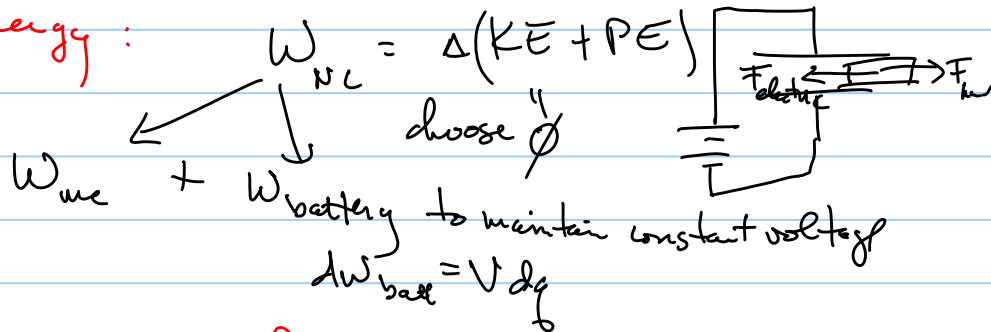 energy :
W_NC = Δ(KE + PE)
F_electric F_me
choose " ∅
W_me + W_battery to maintain constant voltage
dW_batt = V dq